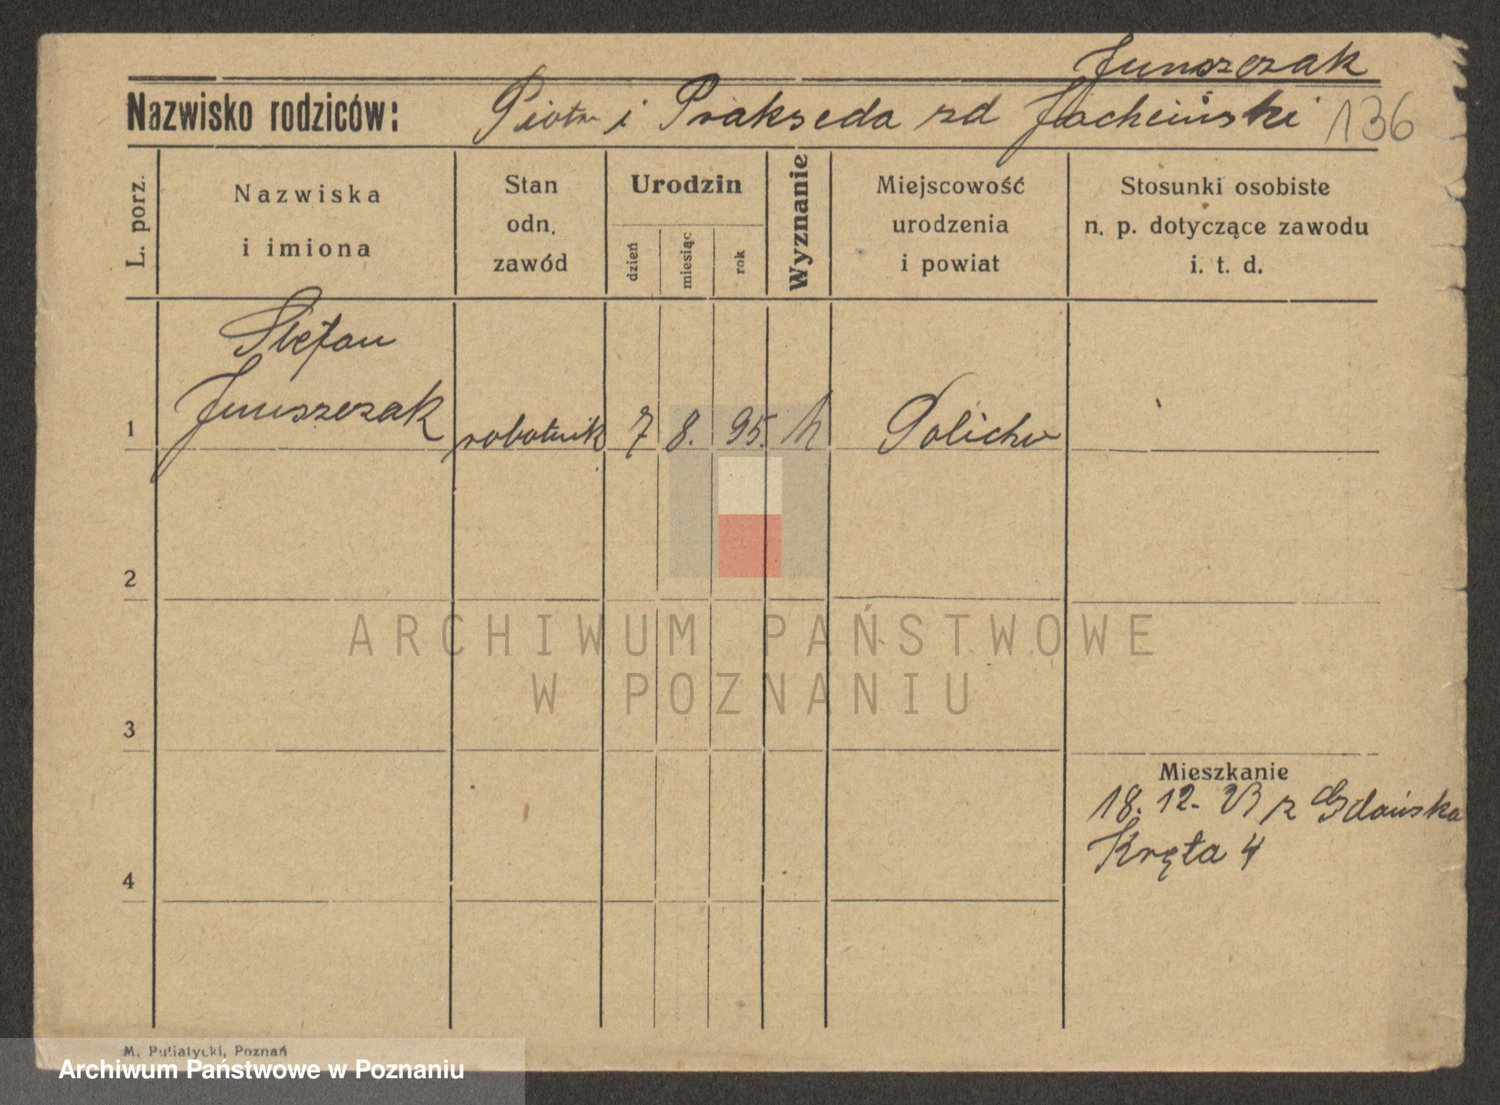 Junszczak
Nazwisko rodziców: Piotr i Prakseda zd 136
L. porz.
Nazwiska
i imiona
Stan
odn.
zawód
Urodzin
dzień
miesiąc
rok
Wyznanie
Miejscowość
urodzenia
i powiat
Stosunki osobiste
n. p. dotyczące zawodu
i. t. d.
Stefan
Junszczak
1 robotnik 7 8. 95.
2
3
4
Mieszkanie
18. 12. 23 z Gdańska
Kręta 4
ARCHIWUM PAŃSTWOWE
W POZNANIU
M. Putiatycki, Poznań
Archiwum Państwowe w Poznaniu